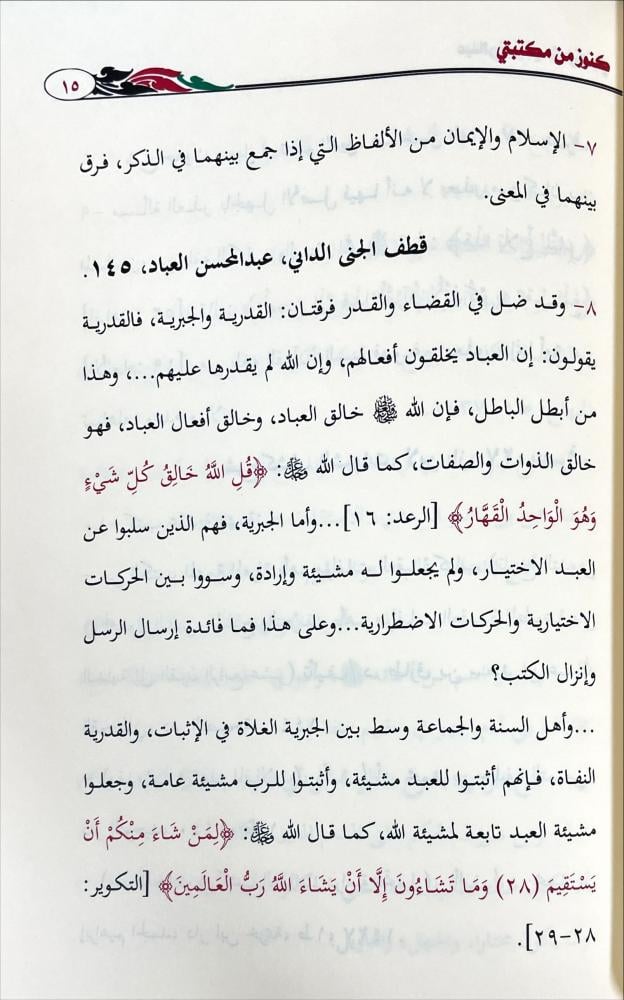 كنوز من مكتبتي
١٥
٧- الإسلام والإيمان من الألفاظ التي إذا جمع بينهما في الذكر، فرق
بينهما في المعنى.
قطف الجنى الداني، عبدالمحسن العباد، ١٤٥.
٨- وقد ضل في القضاء والقدر فرقتان: القدرية والجبرية، فالقدرية
يقولون: إن العباد يخلقون أفعالهم، وإن الله لم يقدرها عليهم...، وهذا
من أبطل الباطل، فإن الله خالق العباد، وخالق أفعال العباد، فهو
خالق الذوات والصفات، كما قال الله ﷿: ﴿قُلِ اللَّهُ خَالِقُ كُلِّ شَيْءٍ
وَهُوَ الْوَاحِدُ الْقَهَّارُ﴾ [الرعد: ١٦]...وأما الجبرية، فهم الذين سلبوا عن
العبد الاختيار، ولم يجعلوا له مشيئة وإرادة، وسووا بين الحركات
الاختيارية والحركات الاضطرارية...وعلى هذا فما فائدة إرسال الرسل
وإنزال الكتب؟
...وأهل السنة والجماعة وسط بين الجبرية الغلاة في الإثبات، والقدرية
النفاة، فإنهم أثبتوا للعبد مشيئة، وأثبتوا للرب مشيئة عامة، وجعلوا
مشيئة العبد تابعة لمشيئة الله، كما قال الله ﷿: ﴿لِمَنْ شَاءَ مِنْكُمْ أَنْ
يَسْتَقِيمَ (٢٨) وَمَا تَشَاءُونَ إِلَّا أَنْ يَشَاءَ اللَّهُ رَبُّ الْعَالَمِينَ﴾ [التكوير:
٢٨-٢٩].